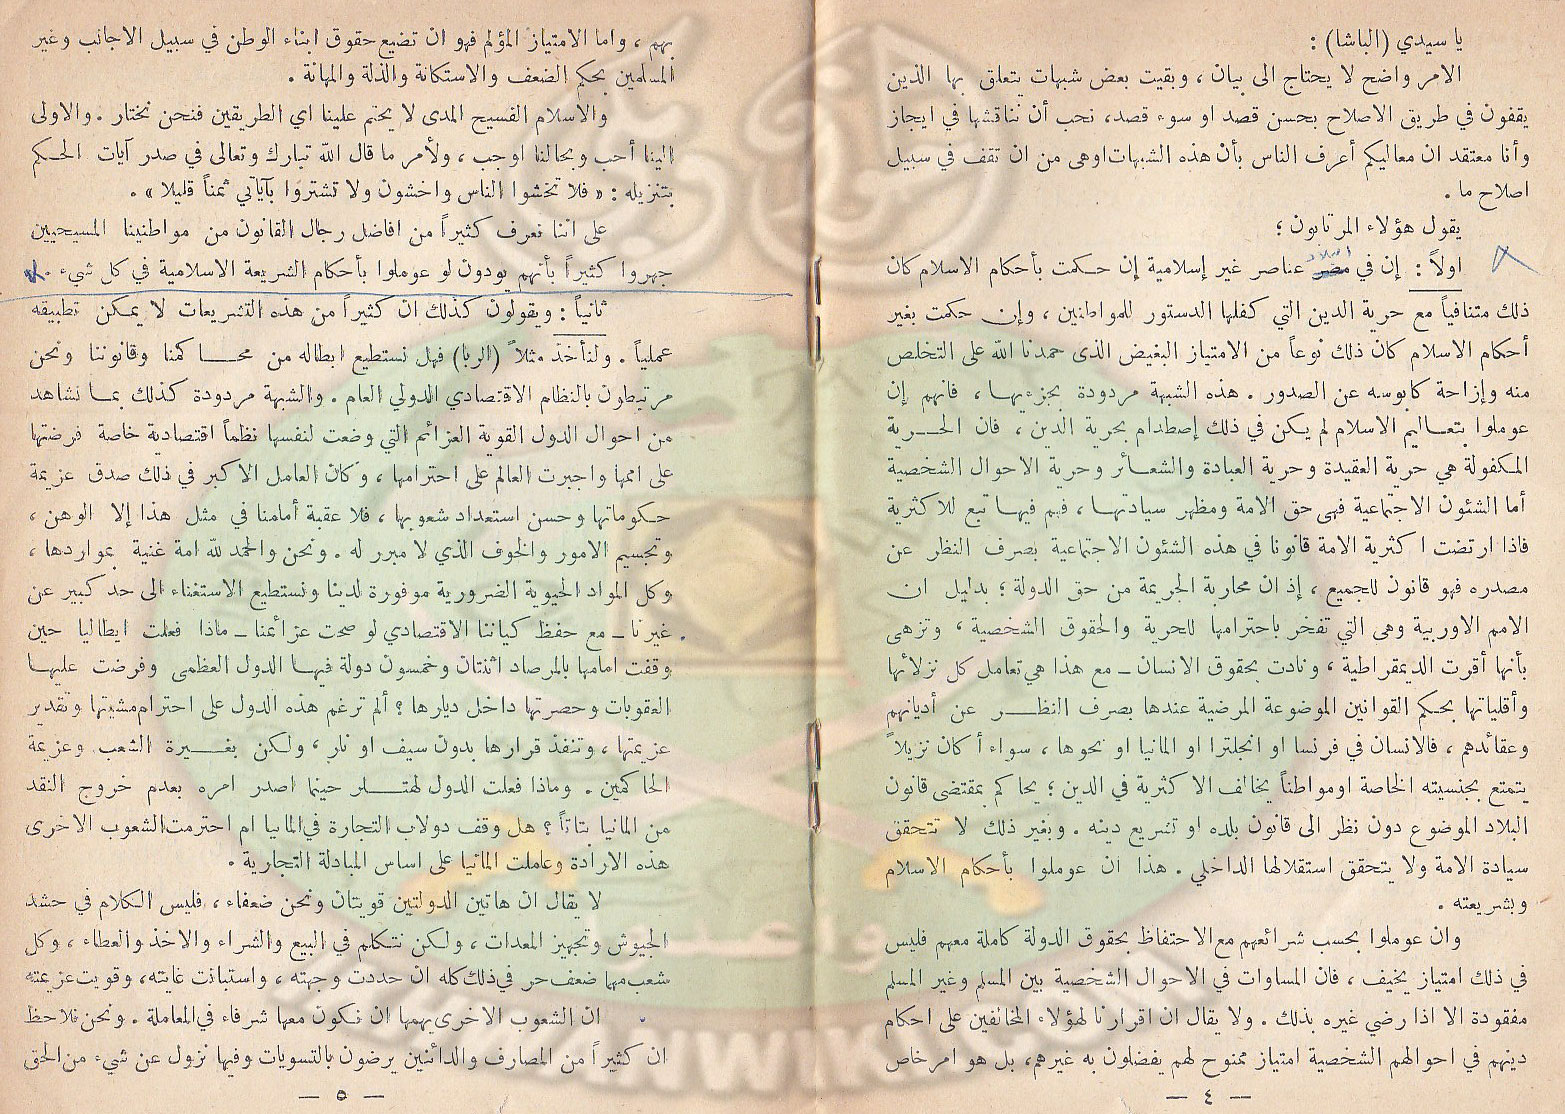 يا سيدي (الباشا) :
الامر واضح لا يحتاج الى بيان ، وبقيت بعض شبهات يتعلق بها الذين
يقفون في طريق الاصلاح بحسن قصد او سوء قصد، نحب أن نناقشها في ايجاز
وأنا معتقد ان معاليكم أعرف الناس بأن هذه الشبهات اوهى من ان تقف في سبيل
اصلاح ما .
يقول هؤلاء المرتابون ؛
اولاً : إن في مصر عناصر غير إسلامية إن حكمت بأحكام الاسلام كان
ذلك متنافياً مع حرية الدين التي كفلها الدستور للمواطنين ، وإن حكمت بغير
أحكام الاسلام كان ذلك نوعاً من الامتياز البغيض الذى حمدنا الله على التخلص
منه وإزاحة كابوسه عن الصدور . هذه الشبهة مردودة بجزءيها ، فانهم إن
عوملوا بتعاليم الاسلام لم يكن في ذلك إصطدام بحرية الدين ، فان الحرية
المكفولة هي حرية العقيدة وحرية العبادة والشعائر وحرية الاحوال الشخصية
أما الشئون الاجتماعية فهى حق الامة ومظهر سيادتها ، فهم فيها تبع للاكثرية
فاذا ارتضت اكثرية الامة قانونا في هذه الشئون الاجتماعية بصرف النظر عن
مصدره فهو قانون للجميع ، إذ ان محاربة الجريمة من حق الدولة ؛ بدليل ان
الامم الاوربية وهى التي تفخر باحترامها للحرية والحقوق الشخصية ، وتزهى
بأنها أقرت الديمقراطية ، ونادت بحقوق الانسان ــ مع هذا هي تعامل كل نزلائها
وأقلياتها بحكم القوانين الموضوعة المرضية عندها بصرف النظر عن أديانهم
وعقائدهم ، فالانسان في فرنسا او انجلترا او المانيا او نحوها ، سواء أ كان نزيلاً
يتمتع بجنسيته الخاصة اومواطناً يخالف الاكثرية في الدين ؛ يحاكم بمقتضى قانون
البلاد الموضوع دون نظر الى قانون بلده او تشريع دينه . وبغير ذلك لا تتحقق
سيادة الامة ولا يتحقق استقلالها الداخلي . هذا ان عوملوا بأحكام الاسلام
وبشريعته .
وان عوملوا بحسب شرائعهم مع الاحتفاظ بحقوق الدولة كاملة معهم فليس
في ذلك امتياز يخيف ، فان المساوات في الاحوال الشخصية بين المسلم وغير المسلم
مفقودة الا اذا رضي غيره بذلك . ولا يقال ان اقرارنا لهؤلاء المخالفين على احكام
دينهم في احوالهم الشخصية امتياز ممنوح لهم يفضلون به غيرهم، بل هو امر خاص
— ٤ —
بهم ، واما الامتياز المؤلم فهو ان تضيع حقوق ابناء الوطن في سبيل الاجانب وغير
المسلمين بحكم الضعف والاستكانة والذلة والمهانة .
والاسلام الفسيح المدى لا يحتم علينا اي الطريقين فنحن نختار . والاولى
الينا أحب وبحالنا اوجب ، ولأمر ما قال الله تبارك وتعالى في صدر آيات الحكم
بتنزيله : « فلا تخشوا الناس واخشون ولا تشتروا بآياتي ثمناً قليلا » .
على اننا نعرف كثيراً من افاضل رجال القانون من مواطنينا المسيحيين
جهروا كثيراً بأنهم يودون لو عوملوا بأحكام الشريعة الاسلامية في كل شيء .
ثانياً : ويقولون كذلك ان كثيراً من هذه التشريعات لا يمكن تطبيقه
عملياً . ولنأخذ مثلاً (الربا) فهل نستطيع ابطاله من محاكمنا وقانوننا ونحن
مرتبطون بالنظام الاقتصادي الدولي العام . والشبهة مردودة كذلك بما نشاهد
من احوال الدول القوية العزائم التي وضعت لنفسها نظماً اقتصادية خاصة فرضتها
على اممها واجبرت العالم على احترامها ، وكان العامل الاكبر في ذلك صدق عزيمة
حكوماتها وحسن استعداد شعوبها ، فلا عقبة أمامنا في مثل هذا إلا الوهن ،
وتجسيم الامور والخوف الذي لا مبرر له . ونحن والحمد لله امة غنية بمواردها ،
وكل المواد الحيوية الضرورية موفورة لدينا ونستطيع الاستغناء الى حد كبير عن
غيرنا ــ مع حفظ كياننا الاقتصادي لو صحت عزائمنا ــ ماذا فعلت ايطاليا حين
وقفت امامها بالمرصاد اثنتان وخمسون دولة فيها الدول العظمى وفرضت عليها
العقوبات وحصرتها داخل ديارها ؟ ألم ترغم هذه الدول على احترام مشيئتها وتقدير
عزيمتها ، وتنفذ قرارها بدون سيف او نار ، ولكن بغيرة الشعب وعزيمة
الحاكمين . وماذا فعلت الدول لهتلر حينما اصدر امره بعدم خروج النقد
من المانيا بتاتاً ؟ هل وقف دولاب التجارة في المانيا ام احترمت الشعوب الاخرى
هذه الارادة وعاملت المانيا على اساس المبادلة التجارية .
لا يقال ان هاتين الدولتين قويتان ونحن ضعفاء ، فليس الكلام في حشد
الجيوش وتجهيز المعدات ، ولكن نتكلم في البيع والشراء والاخذ والعطاء ، وكل
شعب مهما ضعف حر في ذلك كله ان حددت وجهته ، واستبانت غايته، وقويت عزيمته
ان الشعوب الاخرى يهمها ان نكون معها شرفاء في المعاملة . ونحن نلاحظ
ان كثيراً من المصارف والدائنين يرضون بالتسويات وفيها نزول عن شيء من الحق
— ٥ —